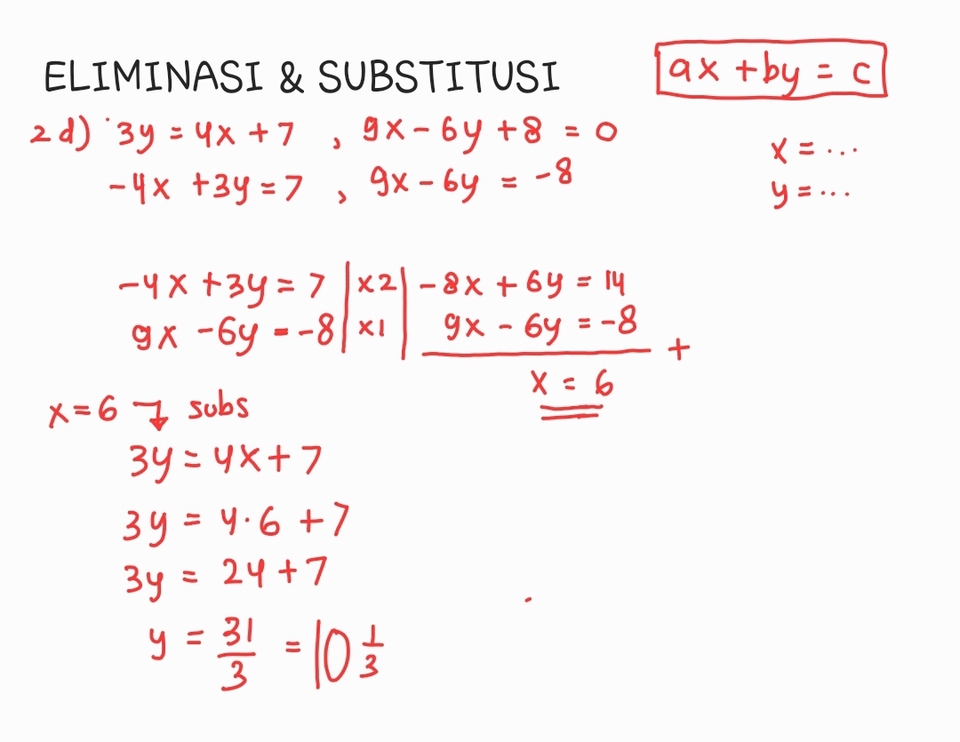 ELIMINASI & SUBSTITUSI
ax + by = c
2 d) 3y = 4x + 7 , 9x - 6y + 8 = 0
x = ...
-4x + 3y = 7 , 9x - 6y = -8
y = ...
-4x + 3y = 7 | x2 | -8x + 6y = 14
9x - 6y = -8 | x1 | 9x - 6y = -8
+
x = 6
x = 6 subs
3y = 4x + 7
3y = 4 · 6 + 7
3y = 24 + 7
y = 31/3 = 10 1/3